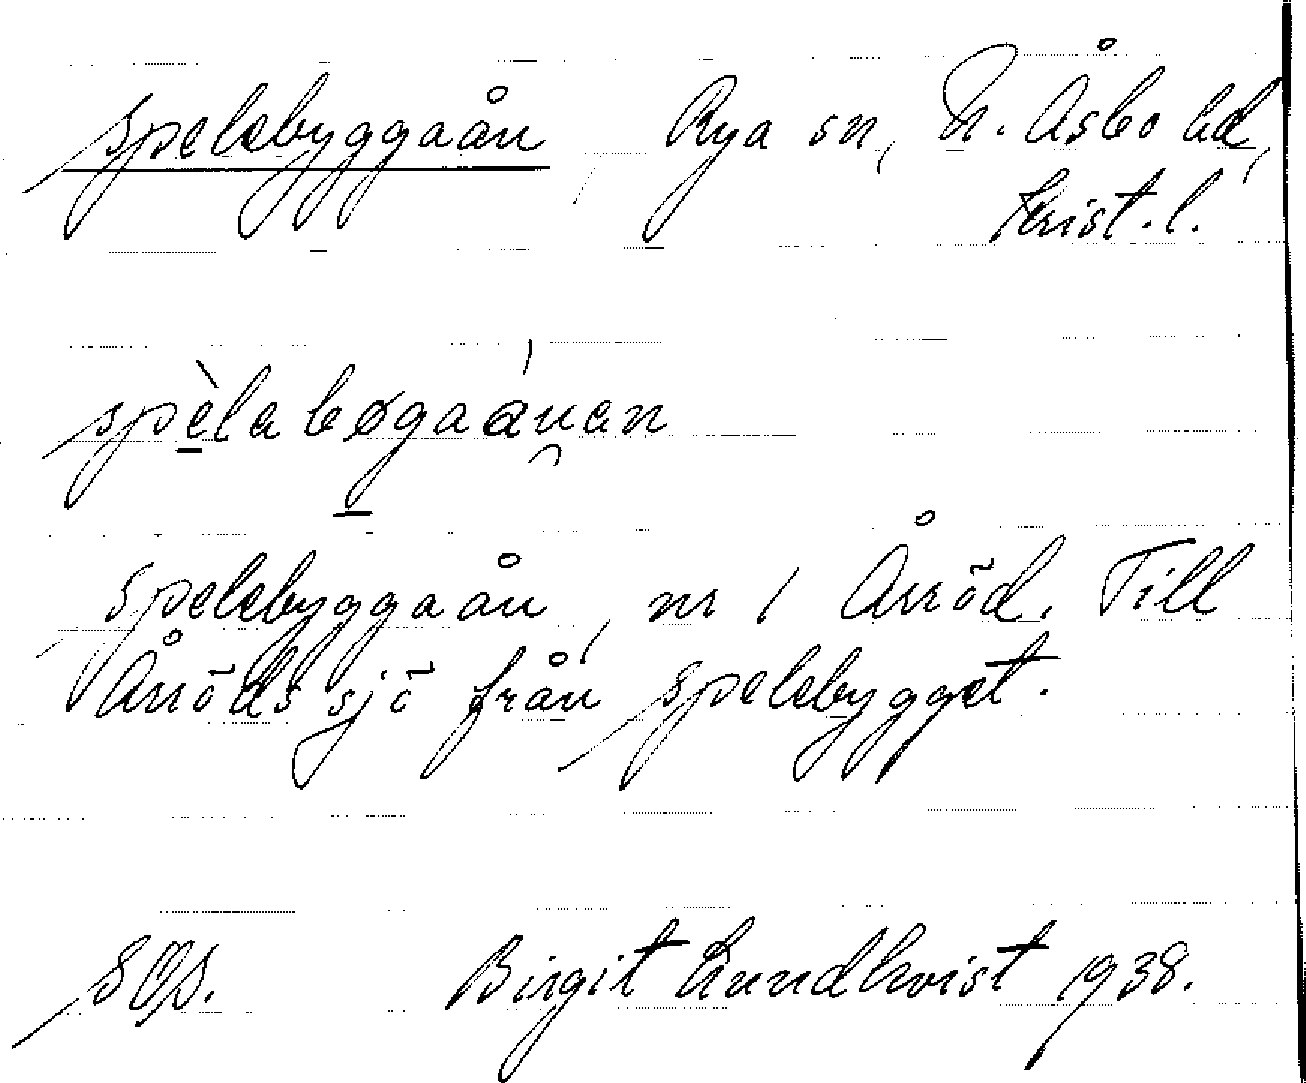 Spelebyggaån, Rya sn, N. Åsbo hd,
Krist. l.
spèlabøgaánan
Spelebyggaån, nr 1 Årröd. Till
Årröds sjö från Spelebygget.
Birgit Lundkvist 1938.